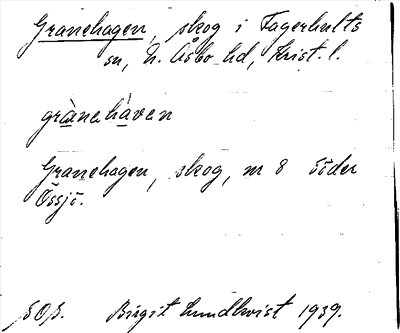 Granehagen, skog i Fagerhults
sn, N. Åsbo hd, Krist. l.
grànehàven
Granehagen, skog, nr 8 Söder
Össjö.
Birgit Lundkvist 1939.